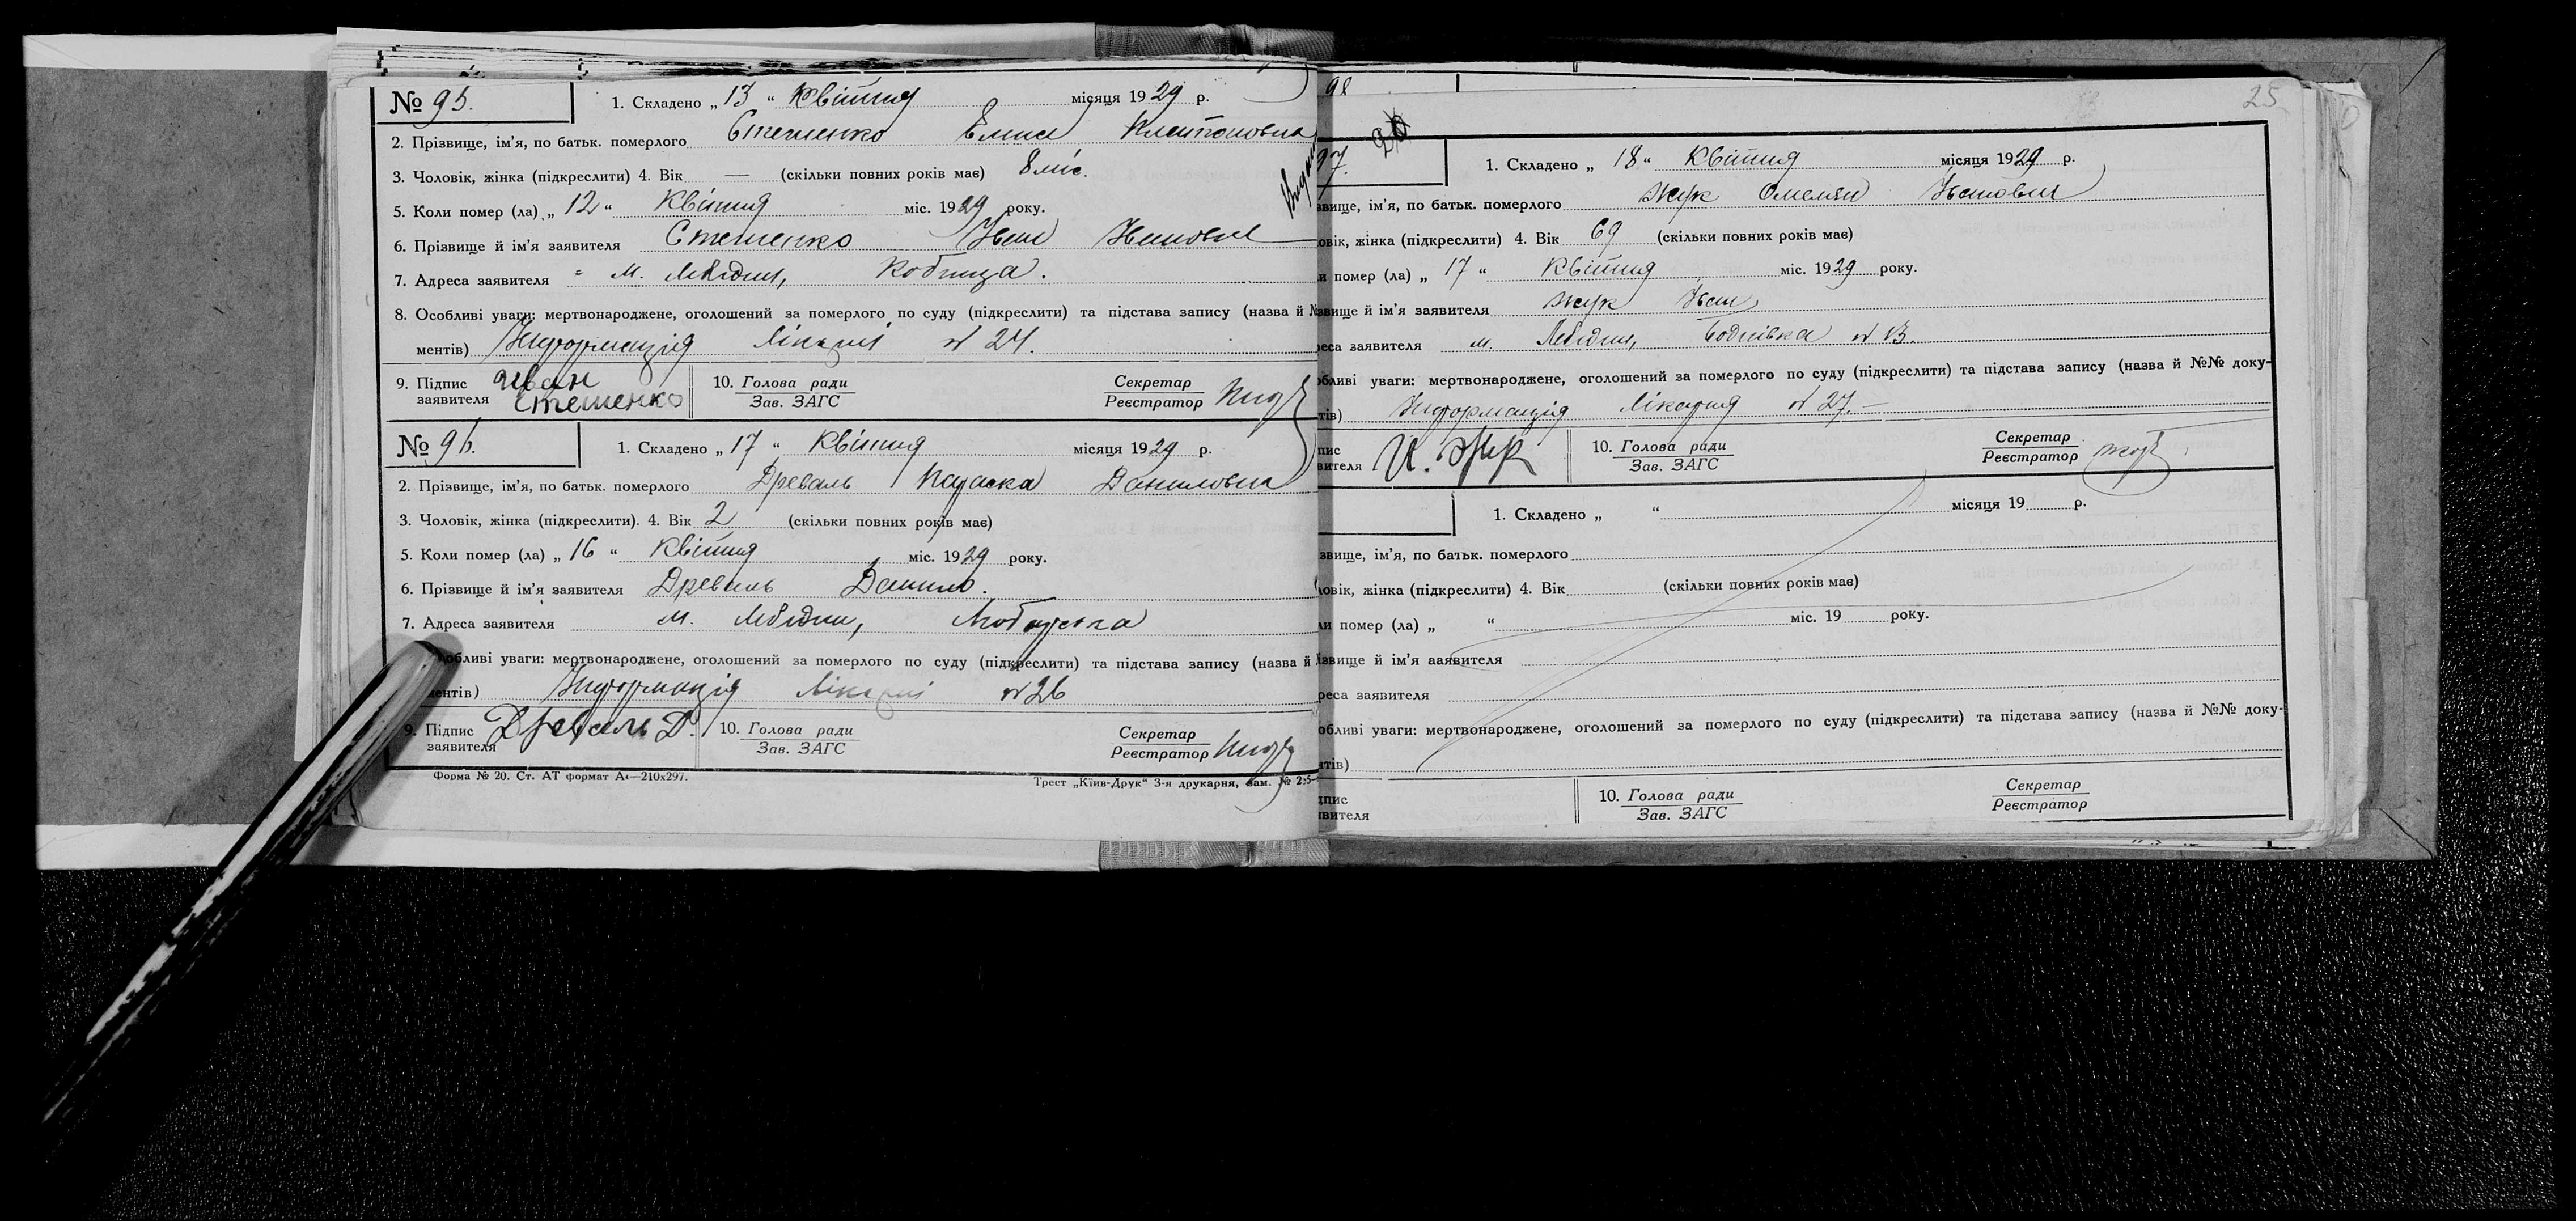 № 95. 1. Складено „ 13 “ Квітня місяця 1929 р.
2. Прізвище, ім’я, по батьк. померлого Стешенко
3. Чоловік, жінка (підкреслити) 4. Вік — (скільки повних років має) 8 міс.
5. Коли помер (ла) „ 12 “ Квітня міс. 1929 року.
6. Прізвище й ім’я заявителя Стешенко Іван
7. Адреса заявителя м. Лебедин, Кобища.
8. Особливі уваги: мертвонароджене, оголошений за померлого по суду (підкреслити) та підстава запису (назва й
ментів) Інформація лікарні № 24.
9. Підпис заявителя Иван Стешенко 10. Голова ради Зав. ЗАГС Секретар Реєстратор
№ 96. 1. Складено „ 17 “ Квітня місяця 1929 р.
2. Прізвище, ім’я, по батьк. померлого Древаль Параска Даниловна
3. Чоловік, жінка (підкреслити). 4. Вік 2 (скільки повних років має)
5. Коли помер (ла) „ 16 “ Квітня міс. 1929 року.
6. Прізвище й ім’я заявителя Древаль Данило.
7. Адреса заявителя м. Лебедин,
обливі уваги: мертвонароджене, оголошений за померлого по суду (підкреслити) та підстава запису (назва й
ментів) Інформація лікарні № 26
9. Підпис заявителя Древаль Д. 10. Голова ради Зав. ЗАГС Секретар Реєстратор
Форма № 20. Ст. АТ формат А4—210х297. Трест „Київ-Друк“ 3-я друкарня, Зам. №
98 25
97. 1. Складено „ 18 “ Квітня місяця 1929 р.
звище, ім’я, по батьк. померлого Жук Омелян
овік, жінка (підкреслити) 4. Вік 69 (скільки повних років має)
и помер (ла) „ 17 “ Квітня міс. 1929 року.
звище й ім’я заявителя Жук Іван
реса заявителя м. Лебедин,
обливі уваги: мертвонароджене, оголошений за померлого по суду (підкреслити) та підстава запису (назва й №№ доку-
тів) Інформація лікарня № 27.—
пис вителя И. Жук 10. Голова ради Зав. ЗАГС Секретар Реєстратор
1. Складено „ “ місяця 19 р.
звище, ім’я, по батьк. померлого
ловік, жінка (підкреслити) 4. Вік (скільки повних років має)
ли помер (ла) „ “ міс. 19 року.
звище й ім’я ааявителя
реса заявителя
обливі уваги: мертвонароджене, оголошений за померлого по суду (підкреслити) та підстава запису (назва й №№ доку-
нтів)
дпис явителя 10. Голова ради Зав. ЗАГС Секретар Реєстратор